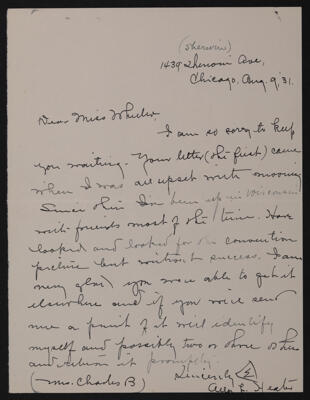 (Sherwin)
1439 Sherwin Ave,
Chicago, Aug. 9, 31.
Dear Miss Wheeler,
I am so sorry to keep
you waiting. Your letter (the first) came
when I was all upset with moving
Since then I've been up in Wisconsin
with friends most of the time. Have
looked and looked for the convention
picture but without success. I am
very glad you were able to get it
elsewhere and if you will send
me a print of it will identify
myself and possibly two or three others
and return it promptly.
Sincerely
(Mrs. Charles B)